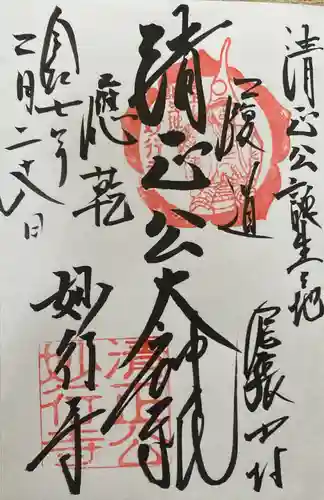 清正公誕生之地
尾張中村
履道
清正公大神祇
應乾
妙行寺
七年
二月二十八日
清正公
妙行寺